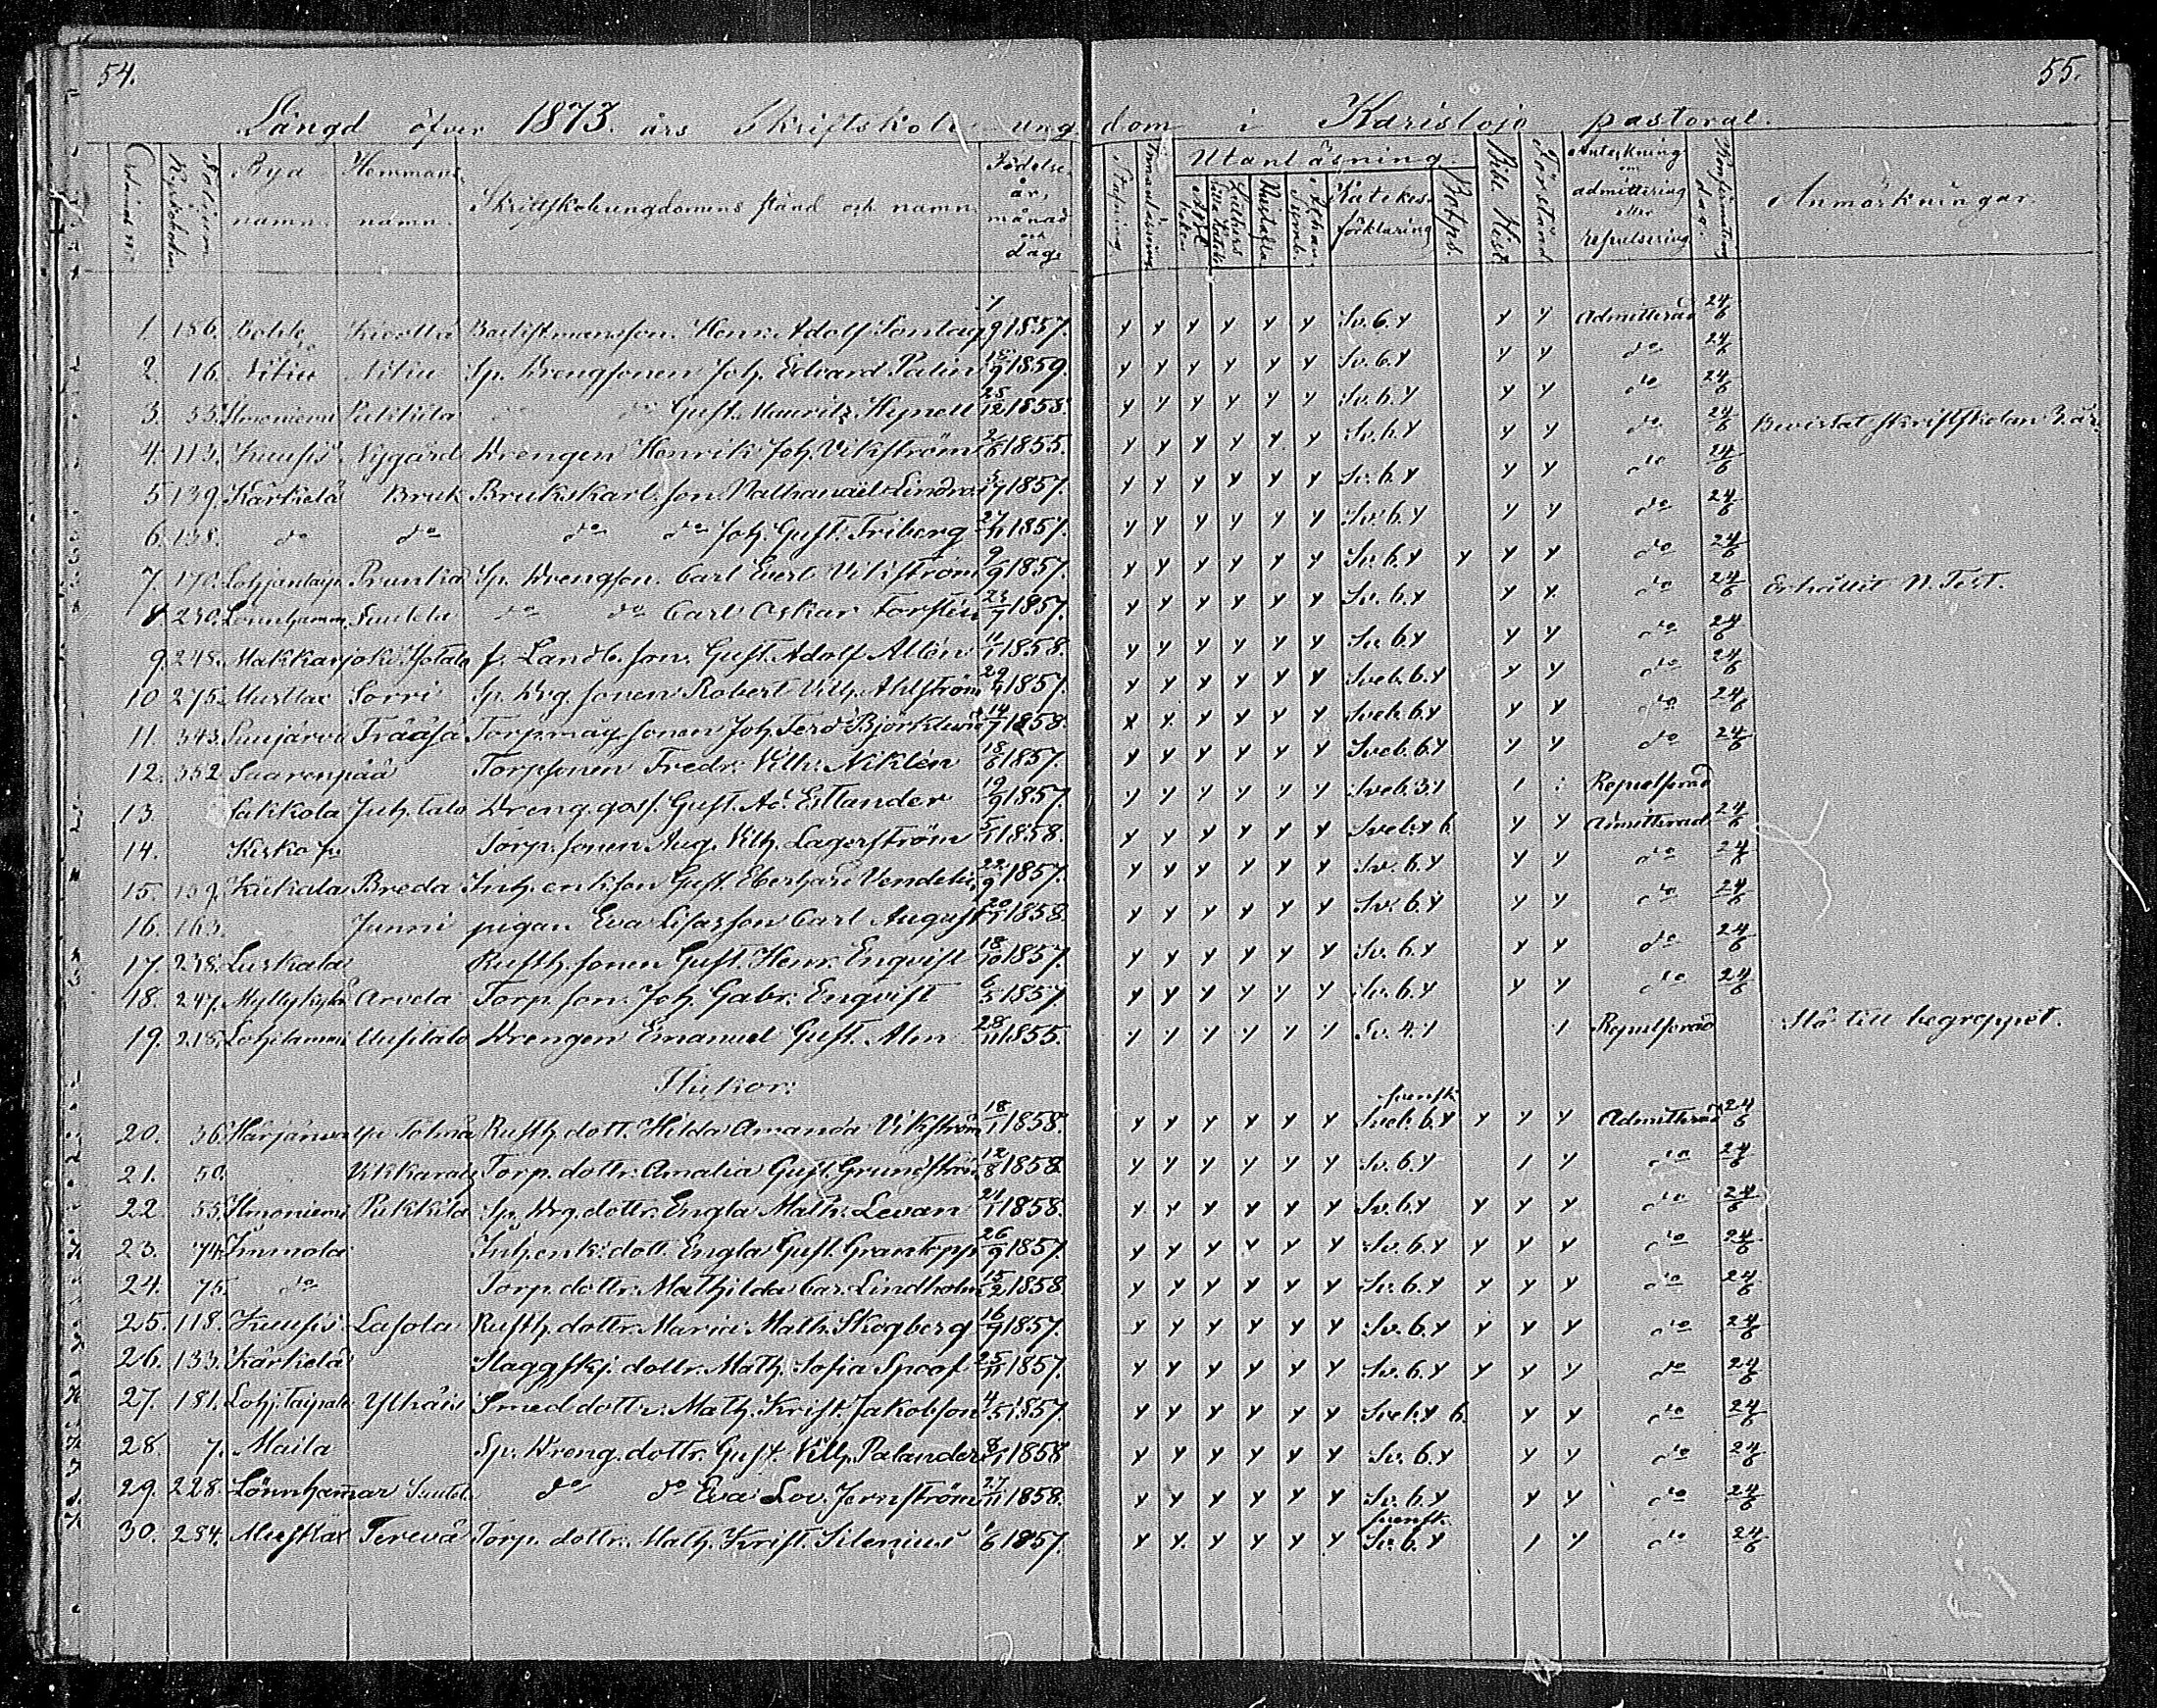 54. 55.
Längd öfver 1873 års Skriftskole-ungdom i Karislojo pastorat.
Ordinarie nr. Kyrkoboken Folium Bya namn. Hemmans namn. Skriftskoleungdomens stånd och namn. Födelse år, månad och dag. Stafning. Innanläsning. Utanläsning. Lutheri Hustafla Athan. Symb. Katekes förklaring Botps. Bibl. Hist. Förstånd Anteckning om admittering eller repulsering Anmärkningar.
1. 186. Kivola Henr. Adolf Sontag 7/9 1857. y y y y y y Sv. 6. y y y Admitterad 24/6
2. 16. Nitiu Nitiu Sp. Drengsonen Joh. Edvard Palin 1859. y y y y y y Sv. 6. y y y do 24/6
3. 55. Ilmoniemi Pukkila do Gust. Mauritz Hynell 25/12 1858. y y y y y y Sv. 6. y y y do 24/6
4. 113. Kuusis Nygård Drengen Henrik Joh. Vikström 2/6 1855. y y y y y y Sv. 6. y y y do 24/6 Bevistat skriftskolan 3. år
5. 139. Kärkelä Bruk Brukskarl. son. Nathanael 1857. y y y y y y Sv. 6. y y y do 24/6
6. 138. do do do do Joh. Gust. Friberg 1857. y y y y y y Sv. 6. y y y do 24/6
7. 170. Prunkia Sp. Drengson. Carl Evert Vikström 9/9 1857. y y y y y y Sv. 6. y y y y do 24/6
8. 230. Lönnhamm. Suutela do do Carl Oskar Forstén 1857. y y y y y y Sv. 6. y y y do 24/6 Erhållit N. Test.
9. 245. Makkarjoki Isotalo f. Landb. son. Gust. Adolf Allén 11/1 1858. y y y y y y Sv. 6 y y y do 24/6
10 275. Sorri Sp. Drg. sonen Robert Vilh. Ahlström 1857. y y y y y y Sveb. 6. y y y do 24/6
11. 343. Suujärvi Träåsa sonen Joh. Ferd. Björklund 1858. y y y y y y Sveb. 6. y y y do 24/6
12. 352 Saarenpää Torpsonen Fredr. Vilh. Niklén 18/6 1857. y y y y y y Sveb. 6. y y y do 24/6
13. Sakkola Juh. talo Dreng. goss. Gust. Ad. Estlander 19/9 1857 y y y y y y Sveb. 3. Repulserad
14. Kisko Torp. sonen Aug. Vilh. Lagerström 5/1 1858. y y y y y y Sveb. y 6. y y Admitterad 24/6
15. 159. Breda Inh. enk. son Gust. Eberhard 22/9 1857. y y y y y y Sv. 6. y y y do 24/6
16. 163. Junni pigan Eva Lisas son Carl August 1858. y y y y y y Sv. 6. y y y do 24/6
17. 238. Luskala Rusth. sonen Gust. Henr. Enqvist 18/10 1857. y y y y y y Sv. 6. y y y do 24/6
18. 247. Myllykylä Arvela Torp. son. Joh. Gabr. Enqvist 6/5 1857 y y y y y y Sv. 6. y y y do 24/6
19. 218. Uusitalo Drengen Emanuel Gust. Alm 28/11 1855. Sv. 4. Repulserad Slö till begreppet.
Flickor:
20. 36. Rusth. dott. Hilda Amanda Vikström 18/1 1858. y y y y y y svensk Sveb. 6. y y y y Admitterad 24/6
21. 50. Torp. dottr. Amalia Gust. Grundström 12/8 1858. y y y y y y Sv. 6. y y do 24/6
22. 55. Ilmoniemi Pukkila Sp. Drg. dottr. Engla Math. Levan 24/1 1858. y y y y y y Sv. 6. y y y y do 24/6
23. 74. Immola Inh. enk. dott. Engla Gust. Grantopp. 26/9 1857 y y y y y y Sv. 6. y y y y do 24/6
24. 75. do Torp. dottr. Mathilda Car. Lindholm 15/2 1858 y y y y y y Sv. 6. y y y y do 24/6
25. 118. Kuusis Lasola Rusth. dottr. Maria Math. Skogberg 16/9 1857. y y y y y y Sv. 6. y y y y do 24/6
26. 133. Kärkelä Slaggskj. dottr. Math. Sofia Spoof 25/11 1857. y y y y y y Sv. 6. y y y y do 24/6
27. 181. Lohj. Taipale Smed dottr. Math. Krist. Jakobsson 4/5 1857. y y y y y y Sveb. y 6. y y do 24/6
28 7. Maila Sp. Dreng. dottr. Gust. Vilh. Palander 1858 y y y y y y Sv. 6. y y y do 24/6
29. 228. Lönnhammar Suutel. do do Eva Lov. Jernström 27/11 1858. y y y y y y Sv. 6. y y y do 24/6
30. 284. Terevä Torp. dottr. Math. Krist. Silenius 1/6 1857. y y y y y y svensk Sv. 6. y y do 24/6